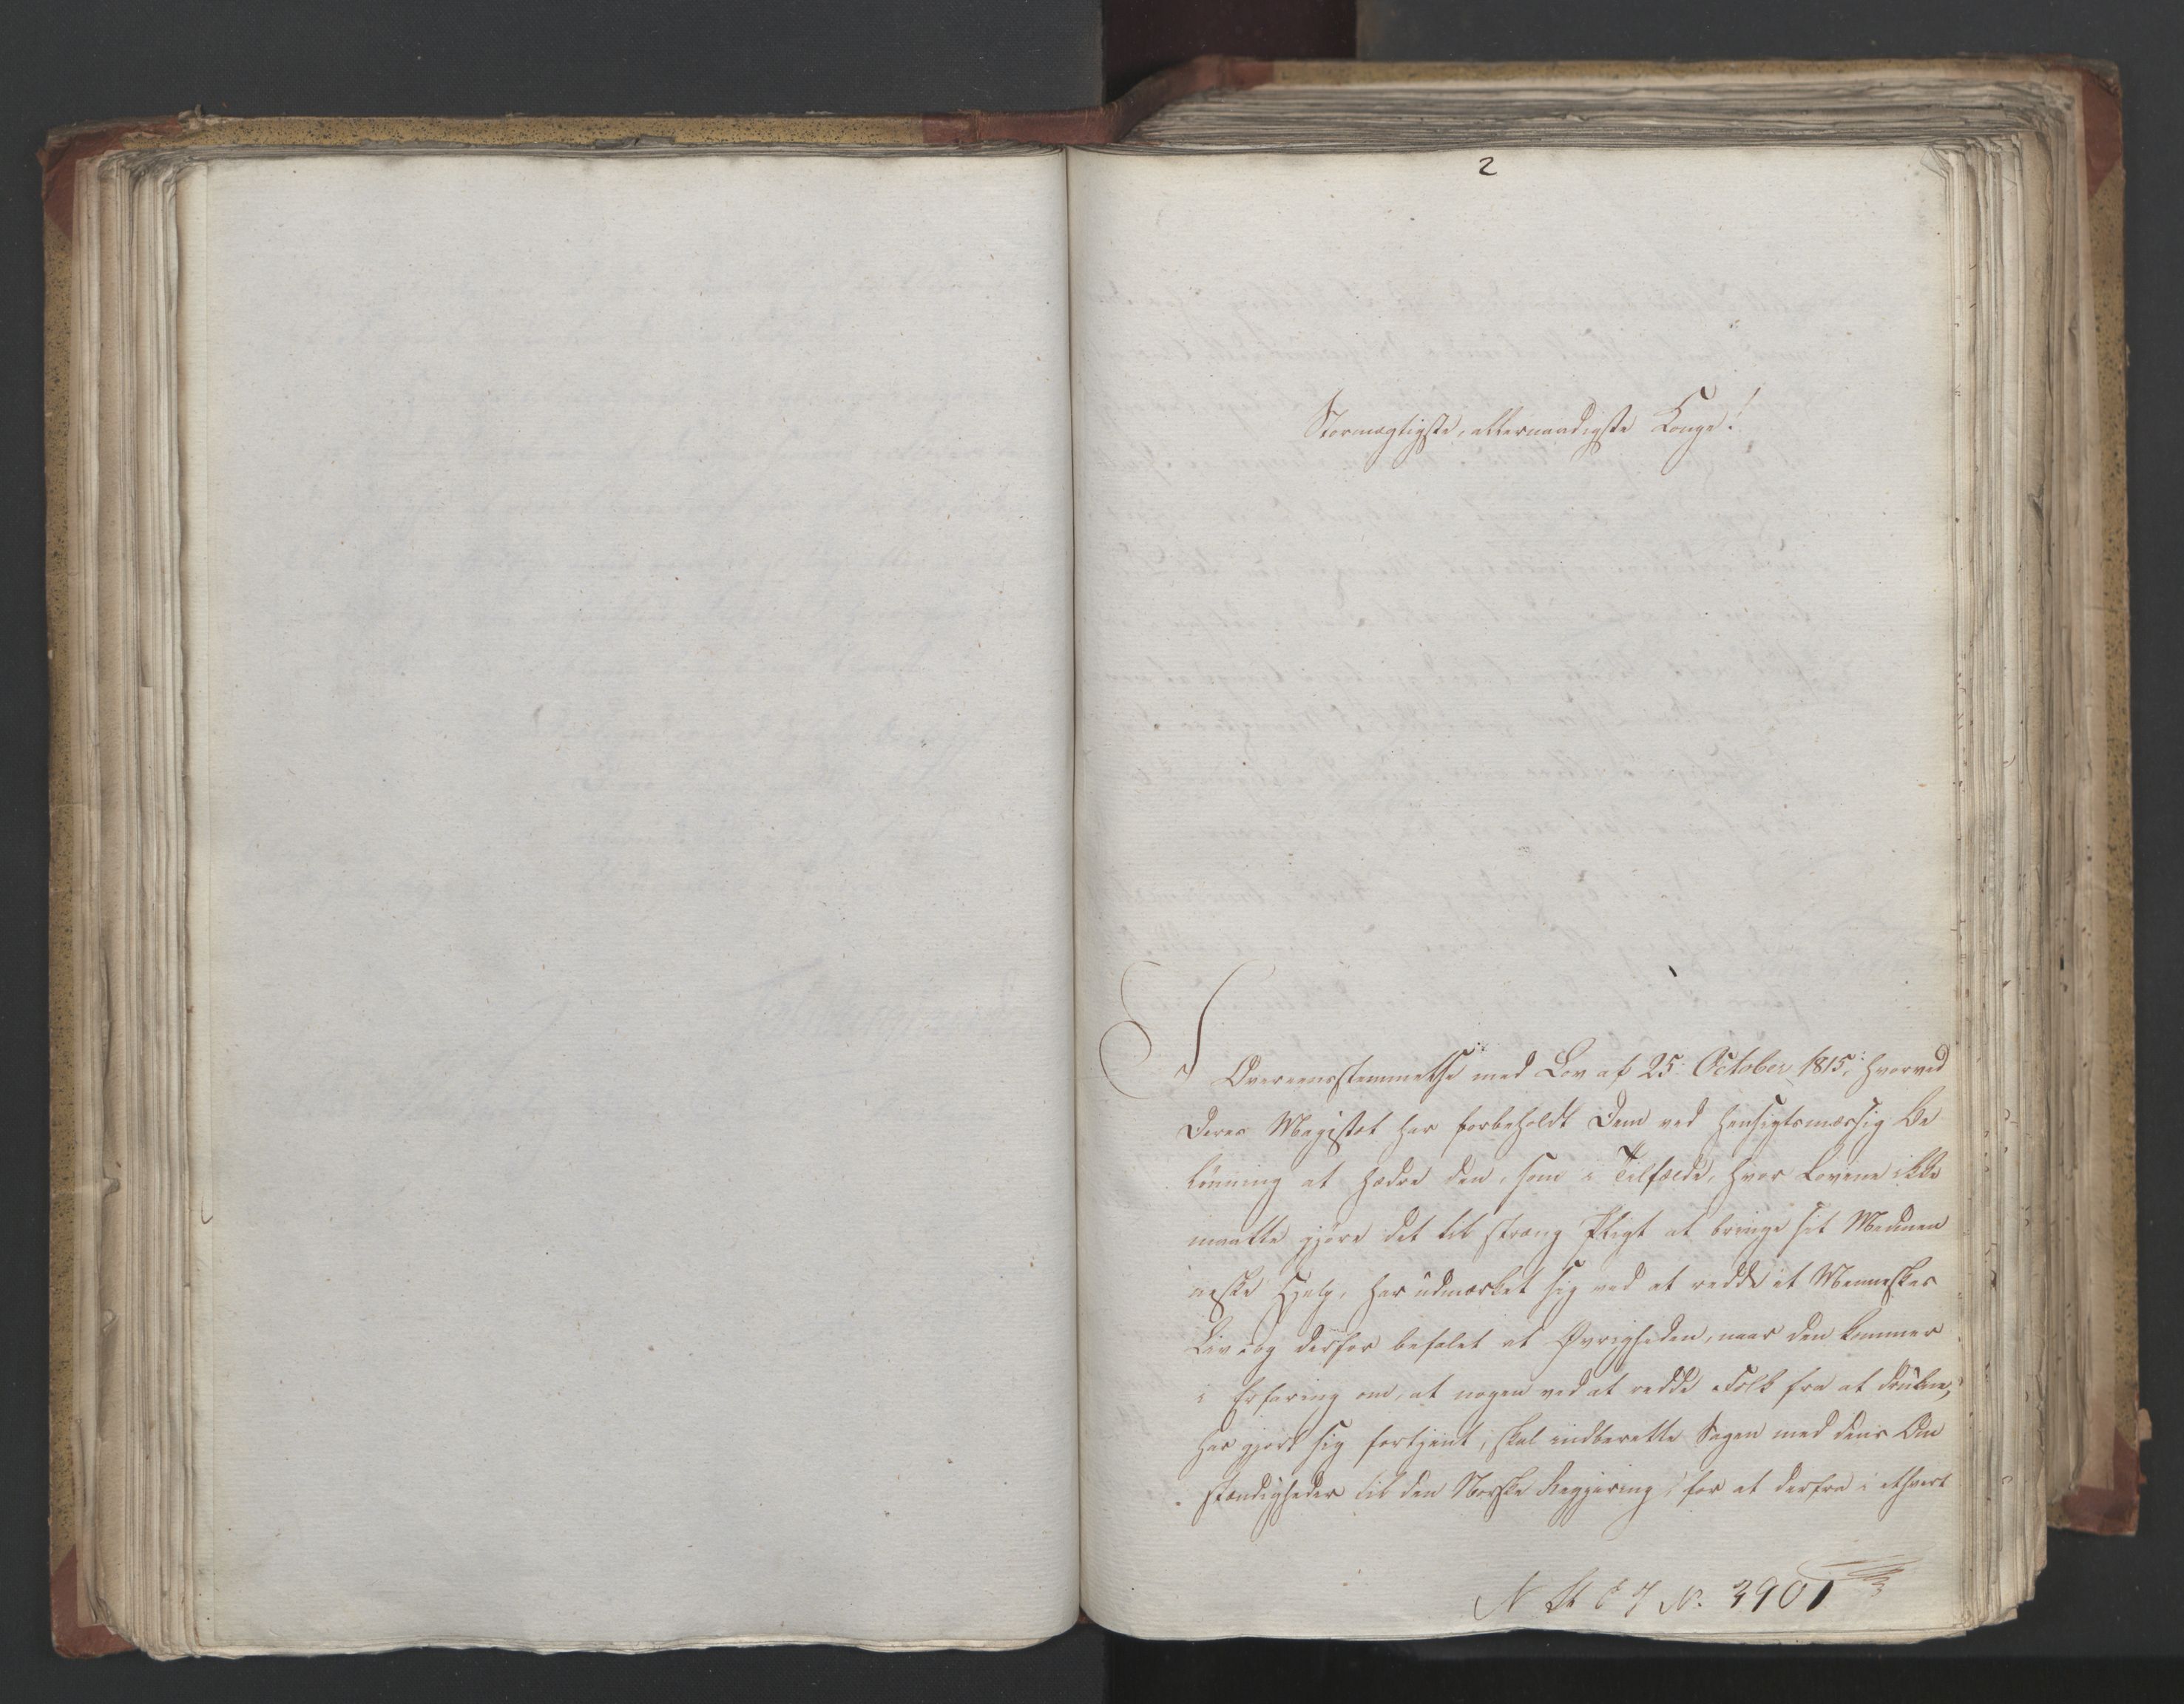 2
Stormægtigste, allernaadigste Konge!
I Overeensstemmelse med Lov af 25 October 1815, hvorved
Deres Majestæt har forbeholdt Dem ved hensigtsmæssig Be
lönning at hædre den, som i Tilfælde, hvor Lovene ikke
maatte gjöre det til streng Pligt at bringe sit Medmen
neske Hjelp, har udmærket sig ved at redde et Menneskes
Liv og derfor befalet at Øvrigheden, naar den kommer
i Erfaring om, at nogen ved at redde Folk fra at drukne,
har gjort sig fortjent, skal indberette Sagen med dens Om
stændigheder til den Norske Regjering, for at derfra i ethvert
N St E J N. 3901